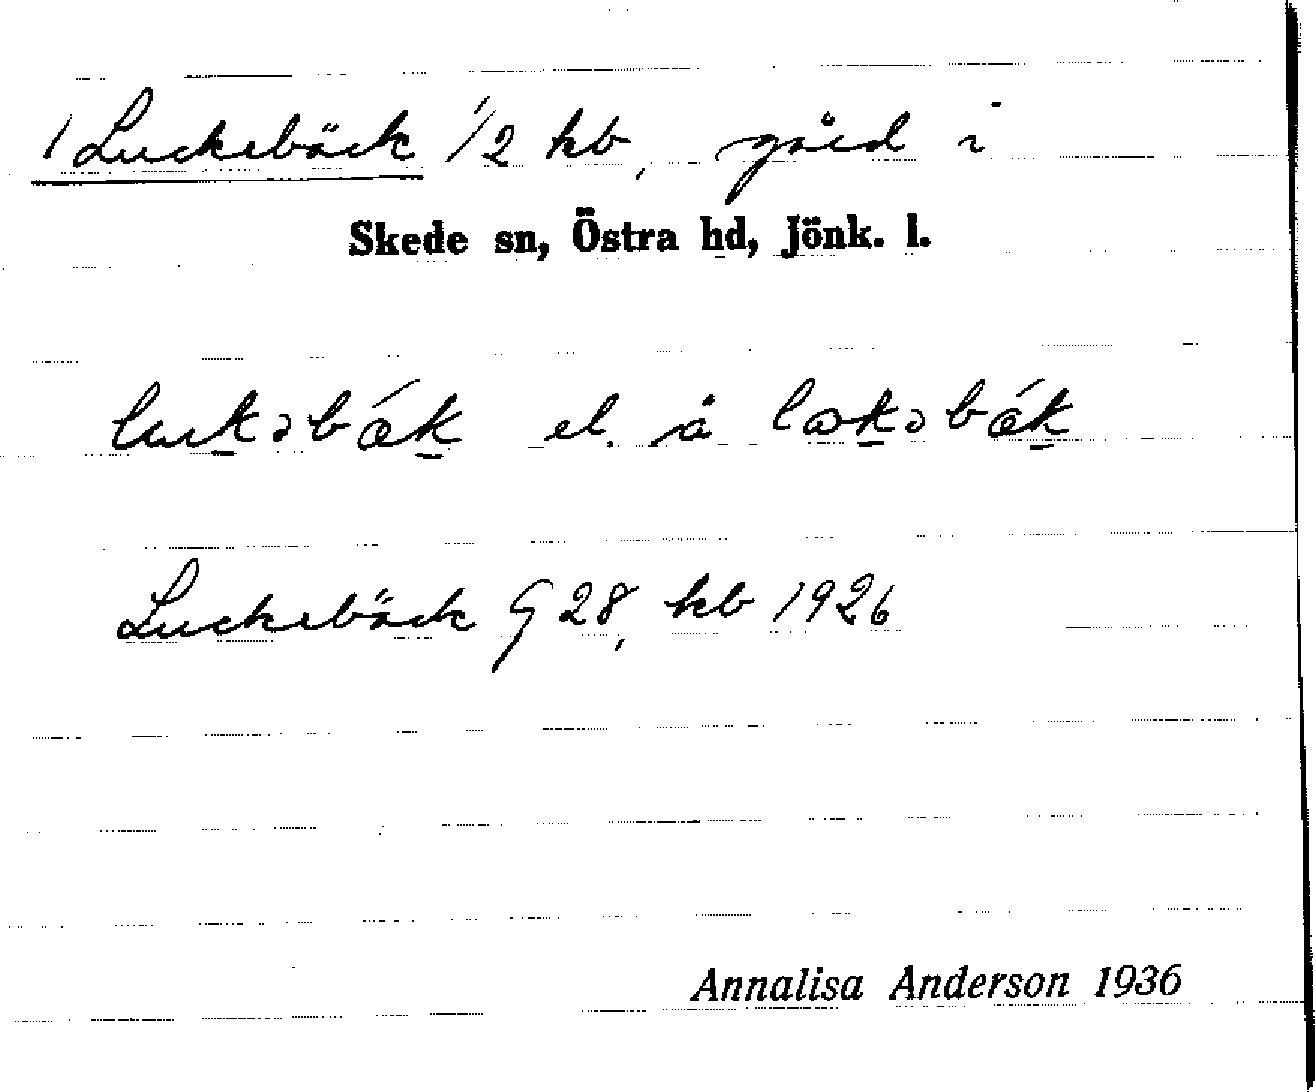 1 Luckebäck 1/2 kb, gård i
Skede sn, Östra hd, Jönk. l.
el. å
Luckebäck G 28, kb 1926
Annalisa Anderson 1936